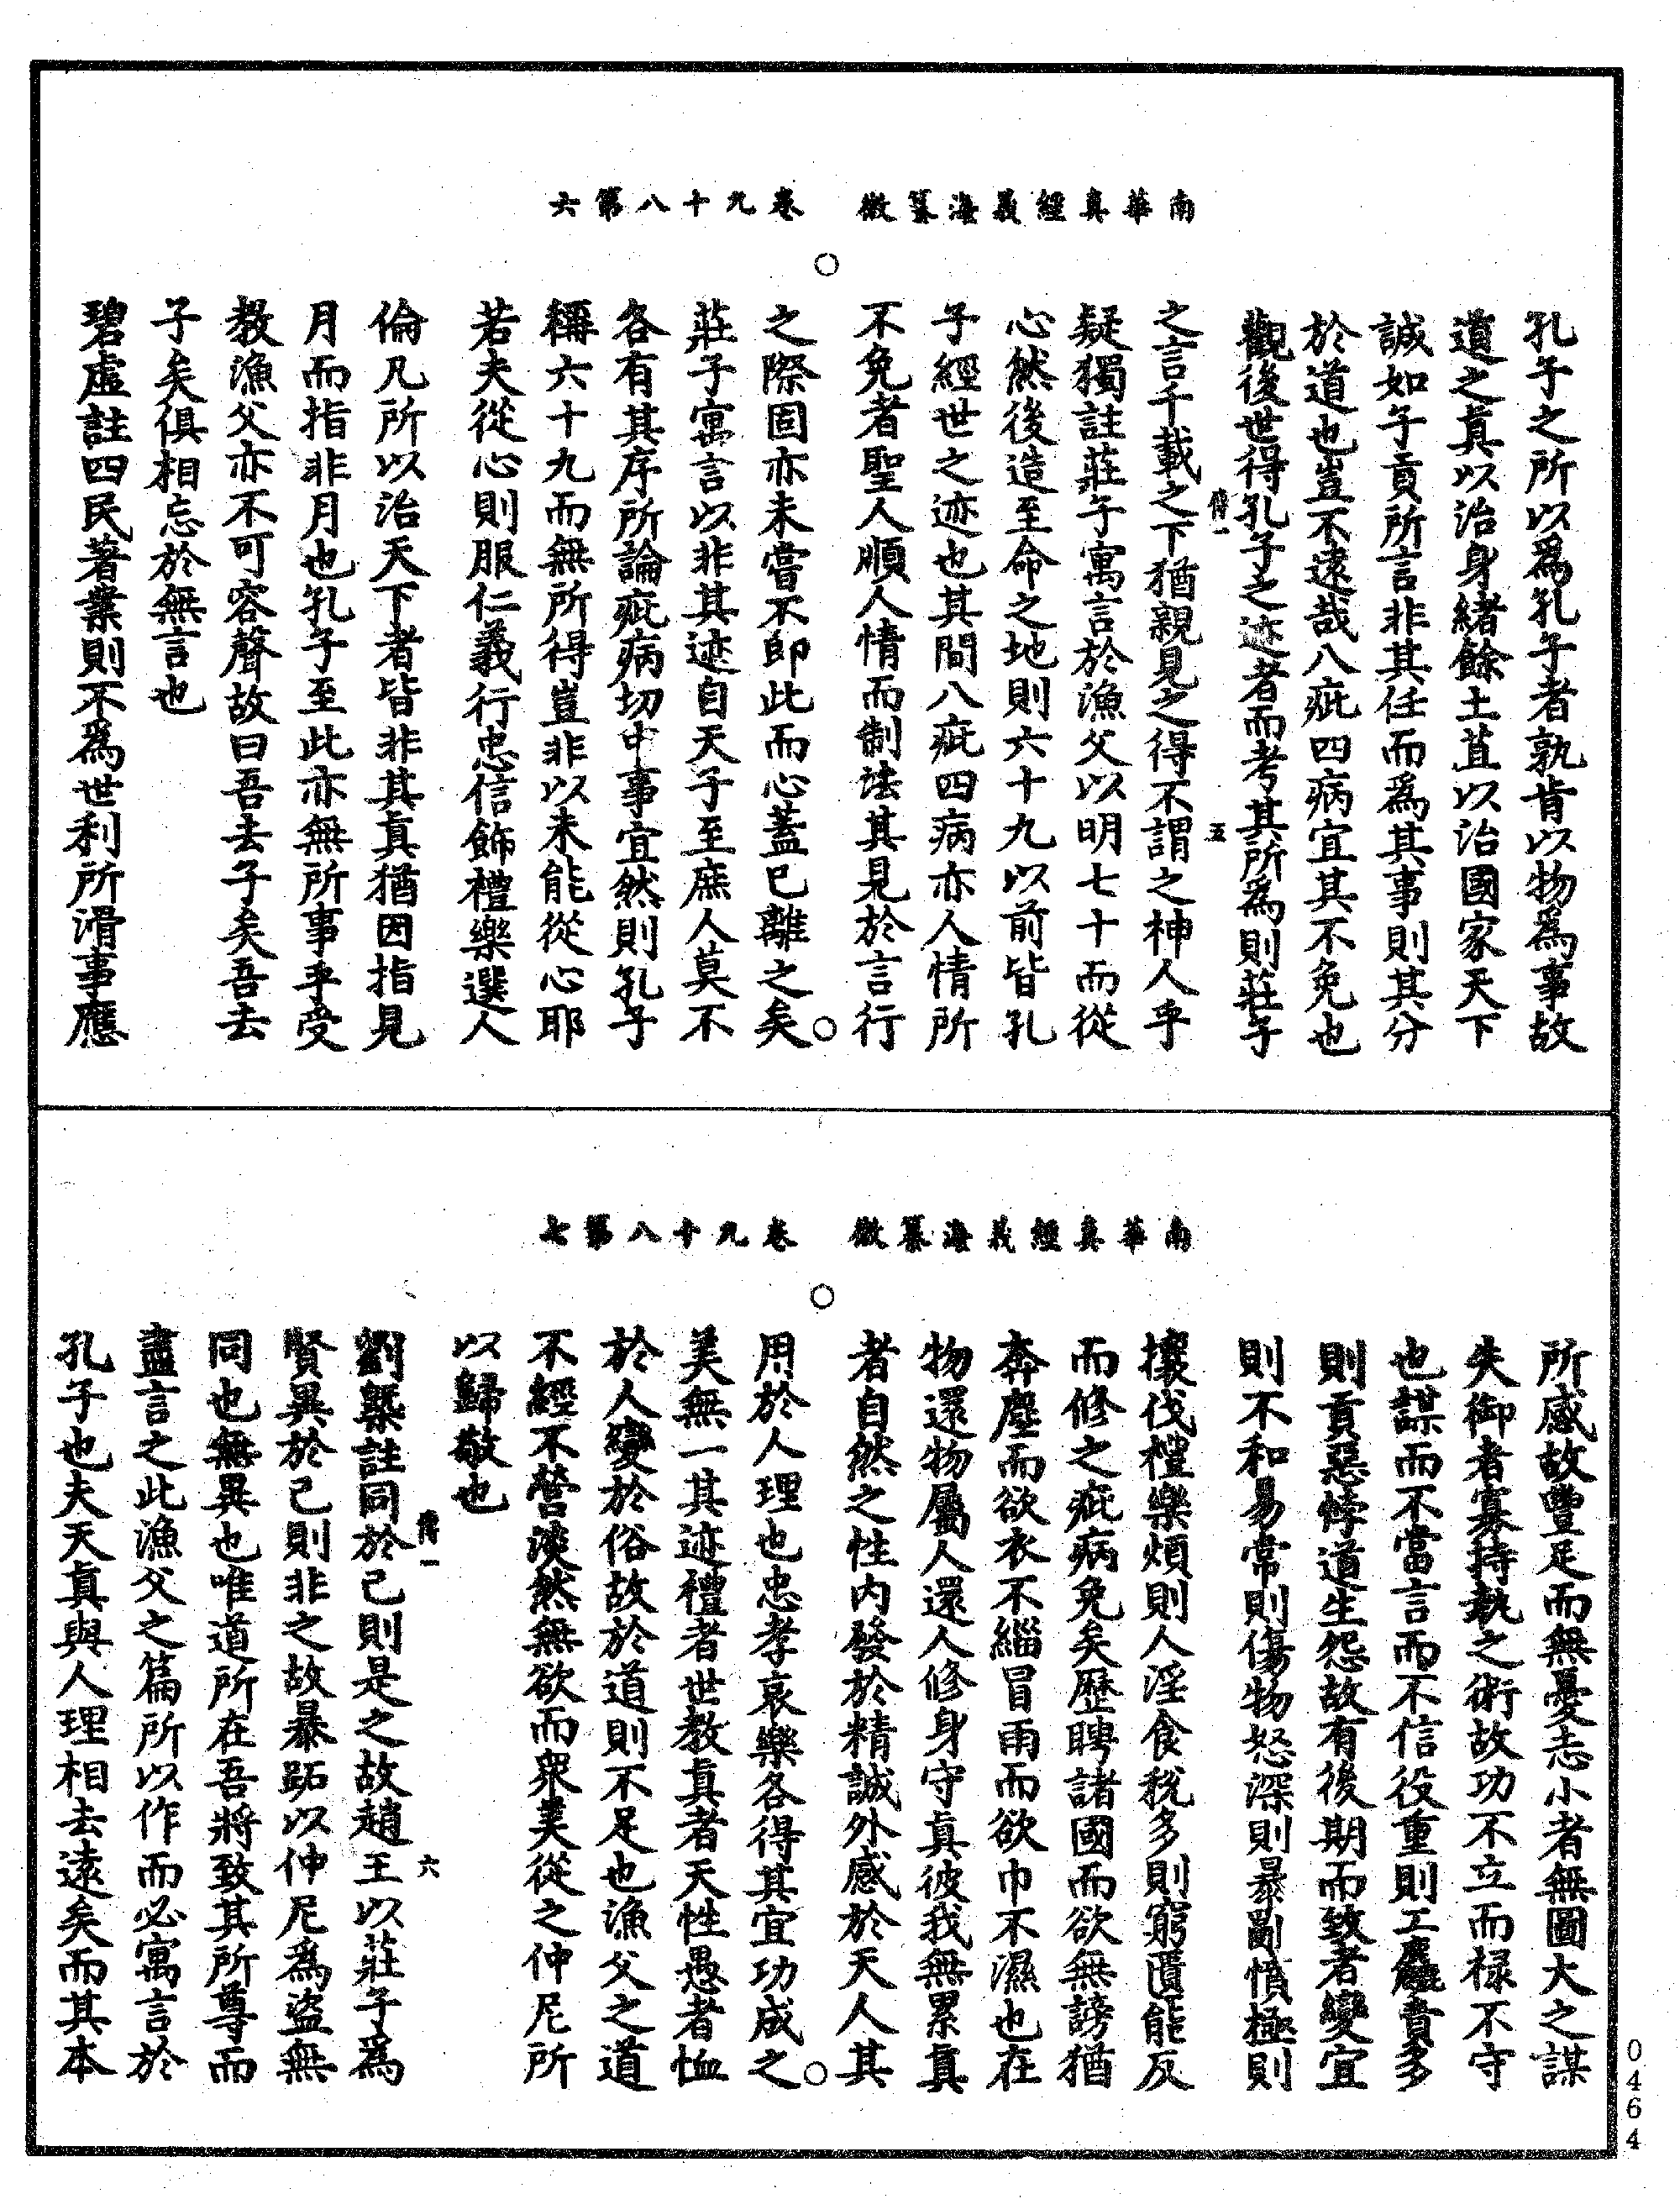 南華真經義海纂微　卷九十八第六
孔子之所以爲孔子者孰肯以物爲事故
道之真以治身緒餘土苴以治國家天下
誠如子貢所言非其任而爲其事則其分
於道也豈不遠哉八疵四病宜其不免也
觀後世得孔子之迹者而考其所爲則莊子
傅一　五
之言千載之下猶親見之得不謂之神人乎
疑獨註莊子寓言於漁父以明七十而從
心然後造至命之地則六十九以前皆孔
子經世之迹也其間八疵四病亦人情所
不免者聖人順人情而制法其見於言行
之際固亦未嘗不即此而心蓋已離之矣
莊子寓言以非其迹自天子至庶人莫不
各有其序所論疵病切中事宜然則孔子
稱六十九而無所得豈非以未能從心耶
若夫從心則服仁義行忠信飾禮樂選人
倫凡所以治天下者皆非其真猶因指見
月而指非月也孔子至此亦無所事乎受
教漁父亦不可容聲故曰吾去子矣吾去
子矣俱相忘於無言也
碧虛註四民著業則不爲世利所滑事應
南華真經義海纂微　卷九十八第七
所感故豐足而無憂志小者無圖大之謀
失御者寡持執之術故功不立而祿不守
也謀而不當言而不信役重則工麤責多
則貢惡悖道生怨故有後期而致者變宜
則不和易常則傷物怒深則暴勵憤極則
攘伐禮樂煩則人淫食稅多則窮匱能反
而修之疵病免矣歷聘諸國而欲無謗猶
奔塵而欲衣不緇冒雨而欲巾不濕也在
物還物屬人還人修身守真彼我無累真
者自然之性內發於精誠外感於天人其
用於人理也忠孝哀樂各得其宜功成之
美無一其迹禮者世教真者天性愚者恤
於人變於俗故於道則不足也漁父之道
不經不營淡然無欲而衆美從之仲尼所
以歸敬也
傅一　六
劉槩註同於己則是之故趙王以莊子爲
賢異於己則非之故暴跖以仲尼爲盜無
同也無異也唯道所在吾將致其所尊而
盡言之此漁父之篇所以作而必寓言於
孔子也夫天真與人理相去遠矣而其本
0464